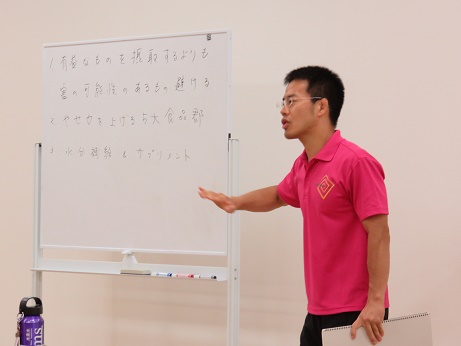 1 有益なものを摂取するよりも
害の可能性のあるもの避ける
2 やせ力を上げる5大食品郡
3 水分補給&サプリメント
ms